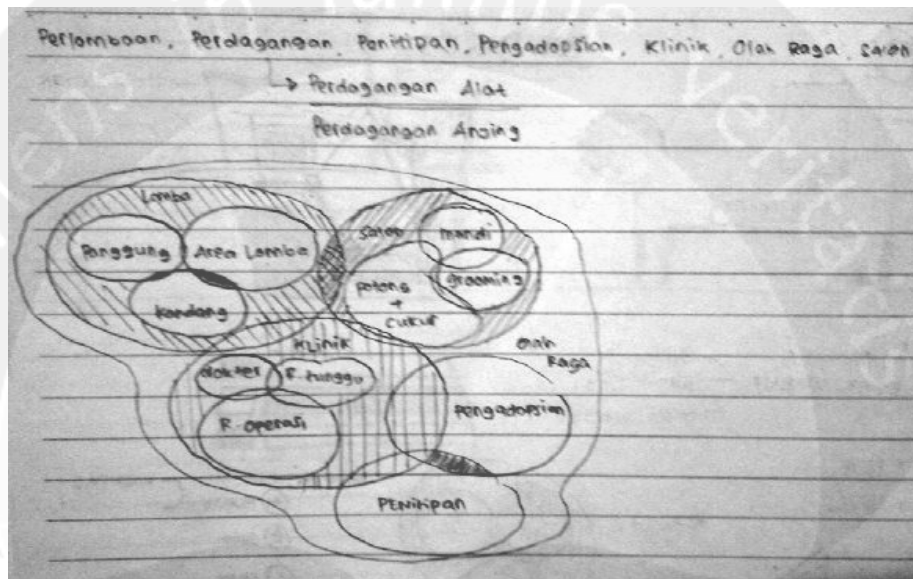 Perlombaan, Perdagangan, Penitipan, Pengadopsian, Klinik, Olah Raga, Salon
Perdagangan Alat
Perdagangan Anjing
Lomba
Panggung
Area Lomba
Kandang
Salon
mandi
Grooming
potong
+
cukur
Klinik
dokter
R. tunggu
R. operasi
Olah
Raga
Pengadopsian
PENitipan